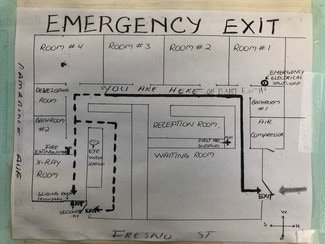 EMERGENCY EXIT
ROOM #4
ROOM #3
ROOM #2
ROOM #1
EMERGENCY
ELECTRICAL
SHUT OFF
YOU ARE HERE
DEVELOPING
ROOM
BATHROOM
#2
BATHROOM
#1
AIR
COMPRESSOR
RECEPTION ROOM
FIRE
EXTINGUISHER
EYE
WASH
STATION
FIRST AID
SUPPLIES
WAITING ROOM
X-RAY
ROOM
SLIDING DOOR
EXIT
SECONDARY
EXIT
EXIT
AVE
FRESNO ST
N
W
S